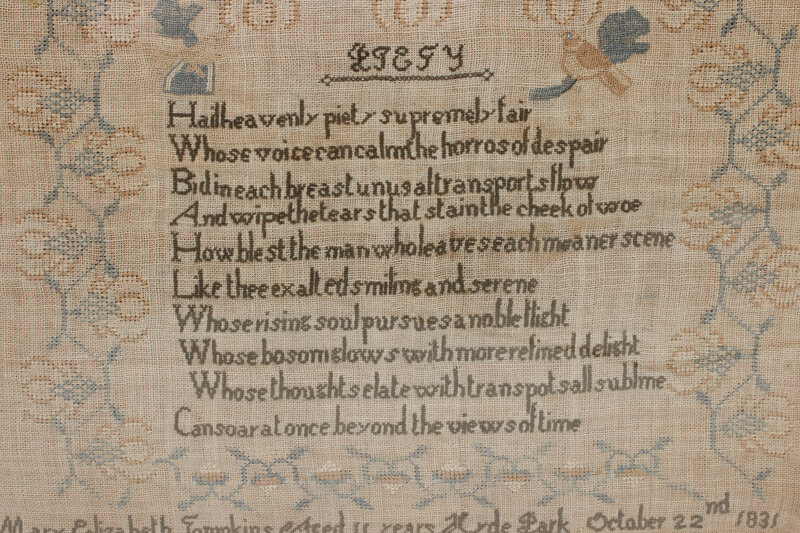 PIETY
Hail heavenly piety supremely fair
Whose voice can calm the horros of despair
Bid in each breast unusal transports flow
And wipe the tears that stain the cheek of woe
How blest the man who leaves each meaner scene
Like thee exalted smiling and serene
Whose rising soul pursues a noble flight
Whose bosom glows with more refined delight
Whose thoughts elate with transpots all sublme
Can soar at once beyond the views of time
Mary Elizabeth Tompkins Aged 11 years Hyde Park October 22nd 1831